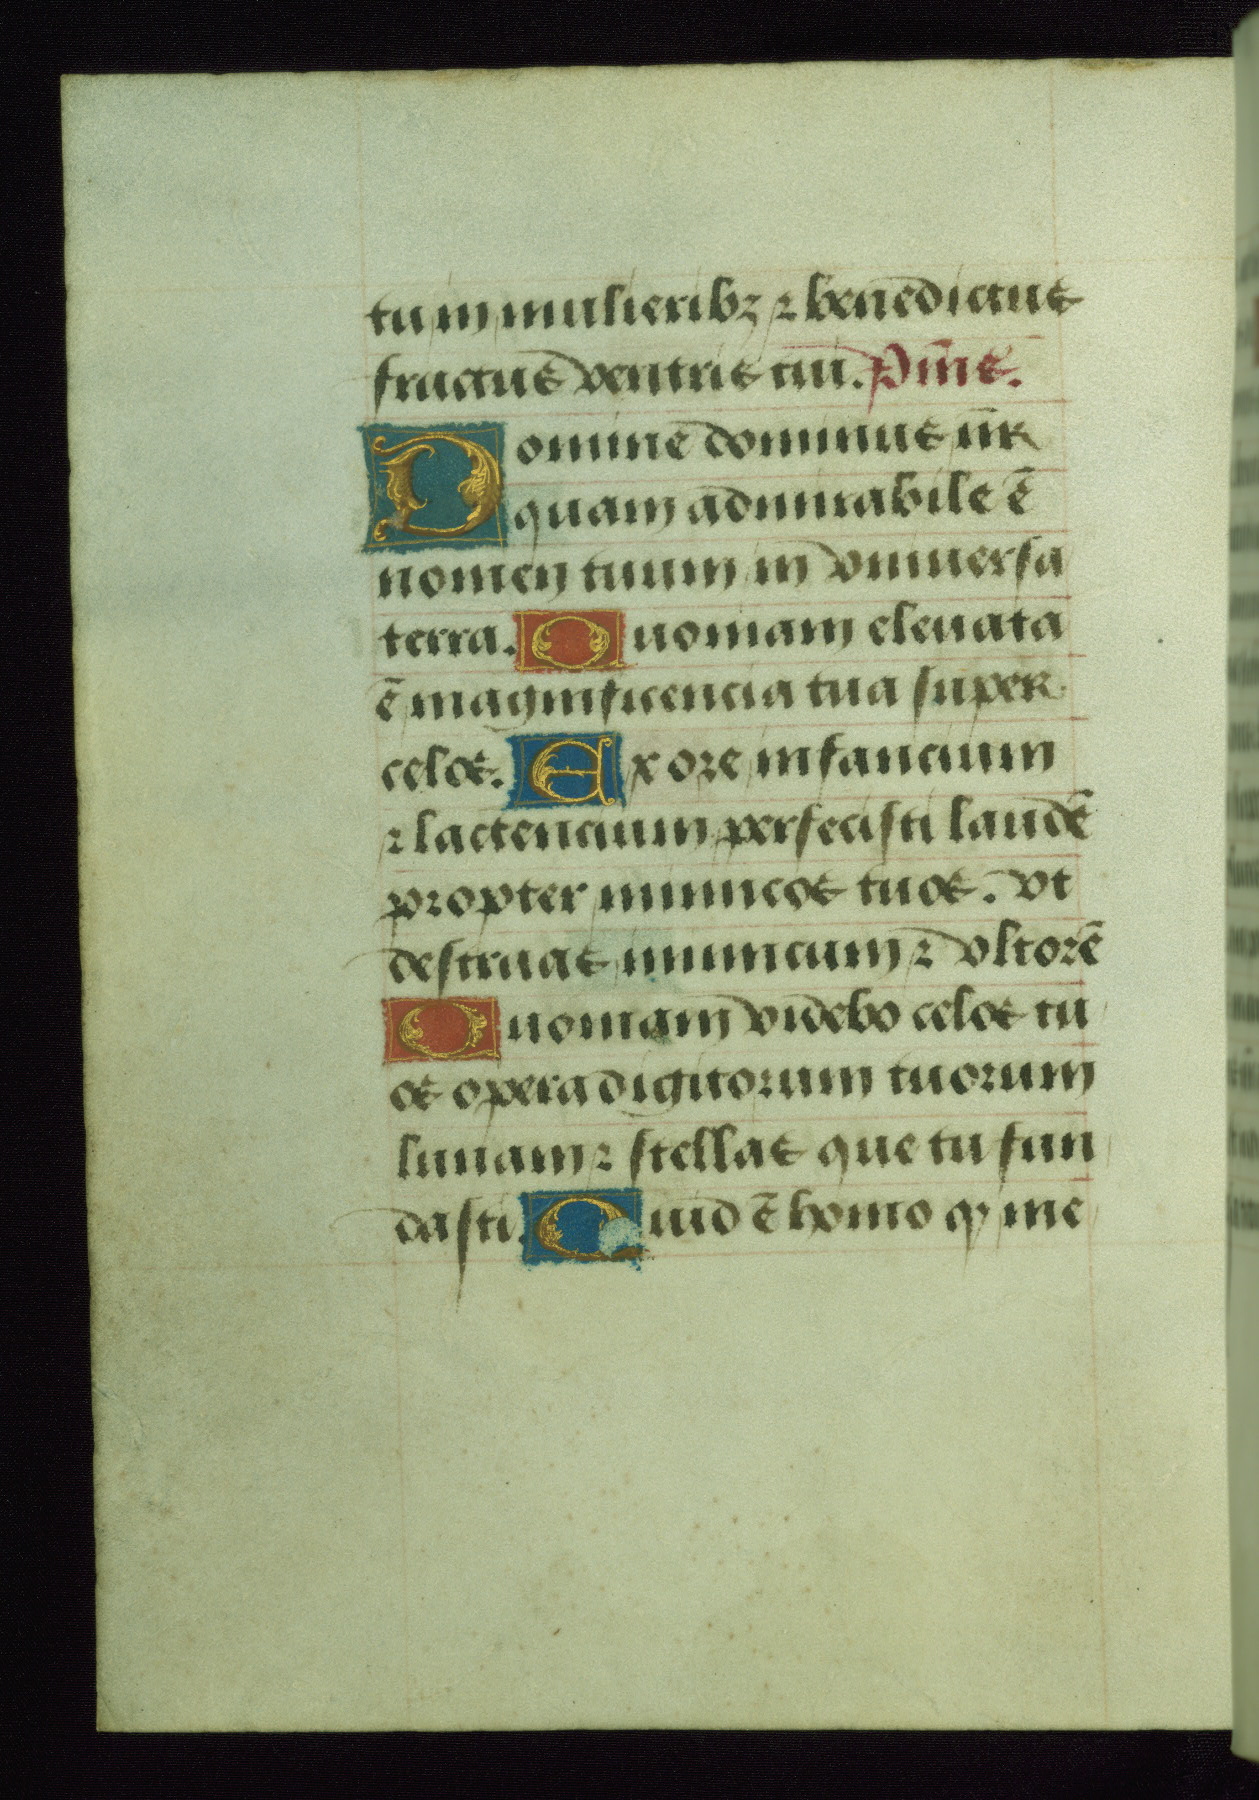 tu in mulieribꝫ ⁊ benedictus
fructus ventris tui. Ps̄mꝰ.
Domine dominus n̄r
quam admirabile ē
nomen tuum in vniuersa
terra. Quoniam eleuata
ē magnificencia tua super
celos. Ex ore infancium
⁊ lactencium perfecisti laudē
propter inimicos tuos. vt
destruas inimicum ⁊ vltorē
Quoniam videbo celos tu
os opera digitorum tuorum
lunam ⁊ stellas que tu fun
dasti. Quid ē homo ꝙ me